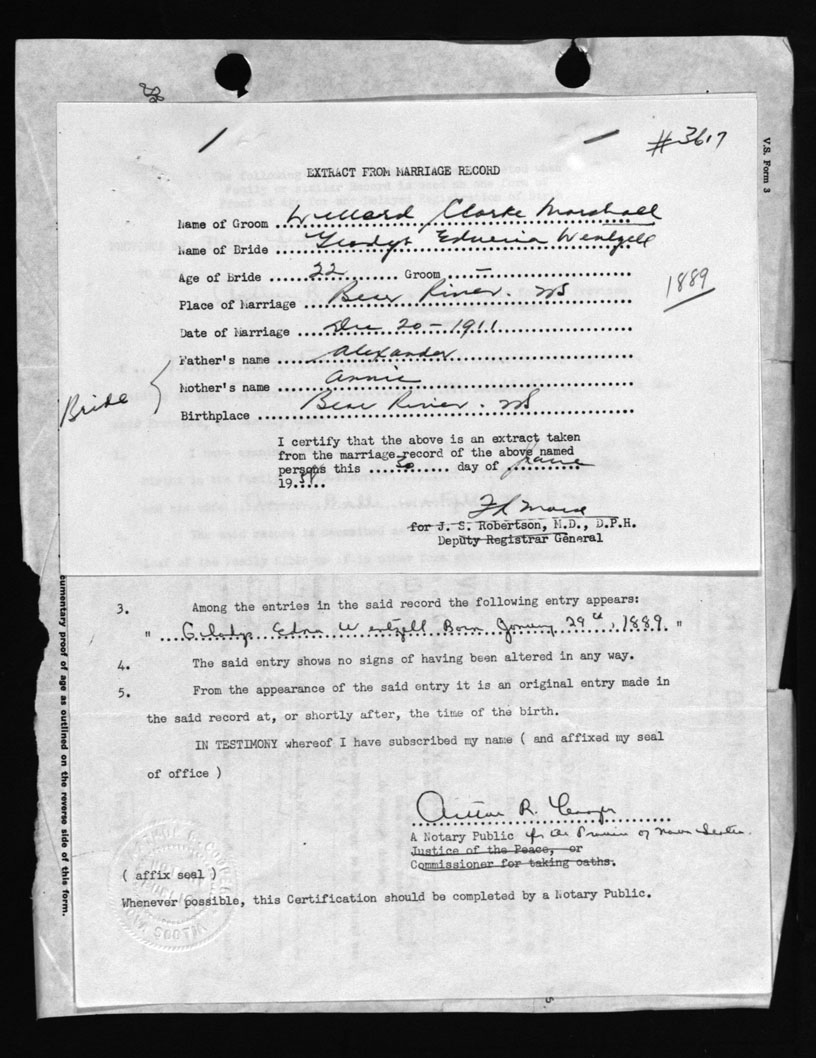 #3617
V.S. Form 3
EXTRACT FROM MARRIAGE RECORD
Name of Groom Willard Clarke Marshall
Name of Bride Gladys Edwena Wentzell
Age of Bride 22 Groom –
Place of Marriage Bear River. NS
1889
Date of Marriage Dec 20 – 1911
Father's name Alexander
Bride
Mother's name Annie
Birthplace Bear River. NS
I certify that the above is an extract taken
from the marriage record of the above named
persons this 30 day of June
1958
for J. S. Robertson, M.D., D.P.H.
Deputy Registrar General
3. Among the entries in the said record the following entry appears:
" Gladys Edna Wentzell Born January 29th, 1889. "
4. The said entry shows no signs of having been altered in any way.
5. From the appearance of the said entry it is an original entry made in
the said record at, or shortly after, the time of the birth.
IN TESTIMONY whereof I have subscribed my name ( and affixed my seal
of office )
R.
A Notary Public of the Province of Nova Scotia.
Justice of the Peace, or
Commissioner for taking oaths.
( affix seal )
Whenever possible, this Certification should be completed by a Notary Public.
cumentary proof of age as outlined on the reverse side of this form.